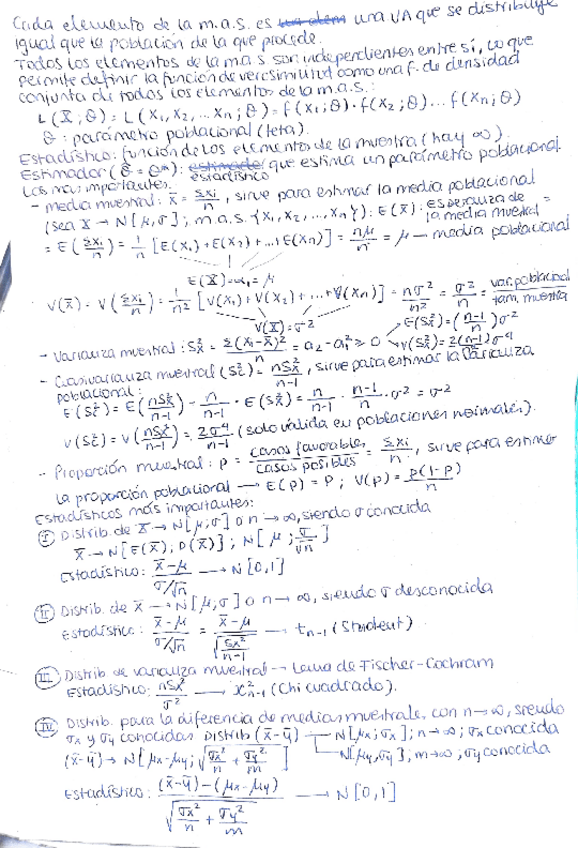 Cada elemento de la m.a.s. es una VA que se distribuye
igual que la población de la que procede.
Todos los elementos de la m.a.s son independientes entre sí, lo que
permite definir la función de verosimilitud como una f. de densidad
conjunta de todos los elementos de la m.a.s.:
L(X̄;θ) = L(x₁, x₂, ... xn; θ) = f(x₁;θ)·f(x₂;θ)... f(xn;θ)
θ: parámetro poblacional (teta).
Estadístico: función de los elementos de la muestra (hay ∞).
Estimador (θ̂ = θ*): estadístico que estima un parámetro poblacional.
Los más importantes:
- media muestral: x̄ = Σxi/n, sirve para estimar la media poblacional
(sea X → N[μ,σ]; m.a.s. {x₁, x₂, ..., xn}: E(x̄): esperanza de la media muestral =
= E(Σxi/n) = 1/n [E(x₁) + E(x₂) + ... + E(xn)] = nμ/n = μ — media poblacional
E(X) = μ
V(x̄) = V(Σxi/n) = 1/n² [V(x₁) + V(x₂) + ... + V(xn)] = nσ²/n² = σ²/n = var. poblacional/tam. muestra
V(X) = σ²
- Varianza muestral: Sx² = Σ(xi - x̄)²/n = a₂ - a₁² ≥ 0
E(Sx²) = (n-1/n)σ²
- Cuasivarianza muestral (Sc²) = nSx²/n-1, sirve para estimar la varianza
poblacional:
E(Sc²) = E(nSx²/n-1) = n/n-1 · E(Sx²) = n/n-1 · n-1/n · σ² = σ²
V(Sc²) = V(nSx²/n-1) = 2σ⁴/n-1 (solo válida en poblaciones normales).
- Proporción muestral: p = casos favorables/casos posibles = Σxi/n, sirve para estimar
la proporción poblacional → E(p) = P; V(p) = p(1-p)/n
Estadísticos más importantes:
I Distrib. de x̄ → N[μ;σ] o n → ∞, siendo σ conocida
x̄ → N[E(x̄); D(x̄)]; N[μ; σ/√n]
Estadístico: x̄-μ / σ/√n → N[0,1]
II Distrib. de x̄ → N[μ,σ] o n → ∞, siendo σ desconocida
Estadístico: x̄-μ / σ/√n = x̄-μ / √(Sx²/n-1) → t n-1 (Student).
III Distrib de varianza muestral → Lema de Fischer-Cochram
Estadístico: nSx²/σ² → χ² n-1 (Chi cuadrado).
IV Distrib. para la diferencia de medias muestrale, con n → ∞, siendo
σx y σy conocidas Distrib (x̄-ȳ) N[μx;σx]; n → ∞; σx conocida
(x̄-ȳ) → N[μx-μy; √(σx²/n + σy²/m)] N[μy,σy]; m → ∞; σy conocida
Estadístico: (x̄-ȳ) - (μx-μy) / √(σx²/n + σy²/m) → N[0,1]